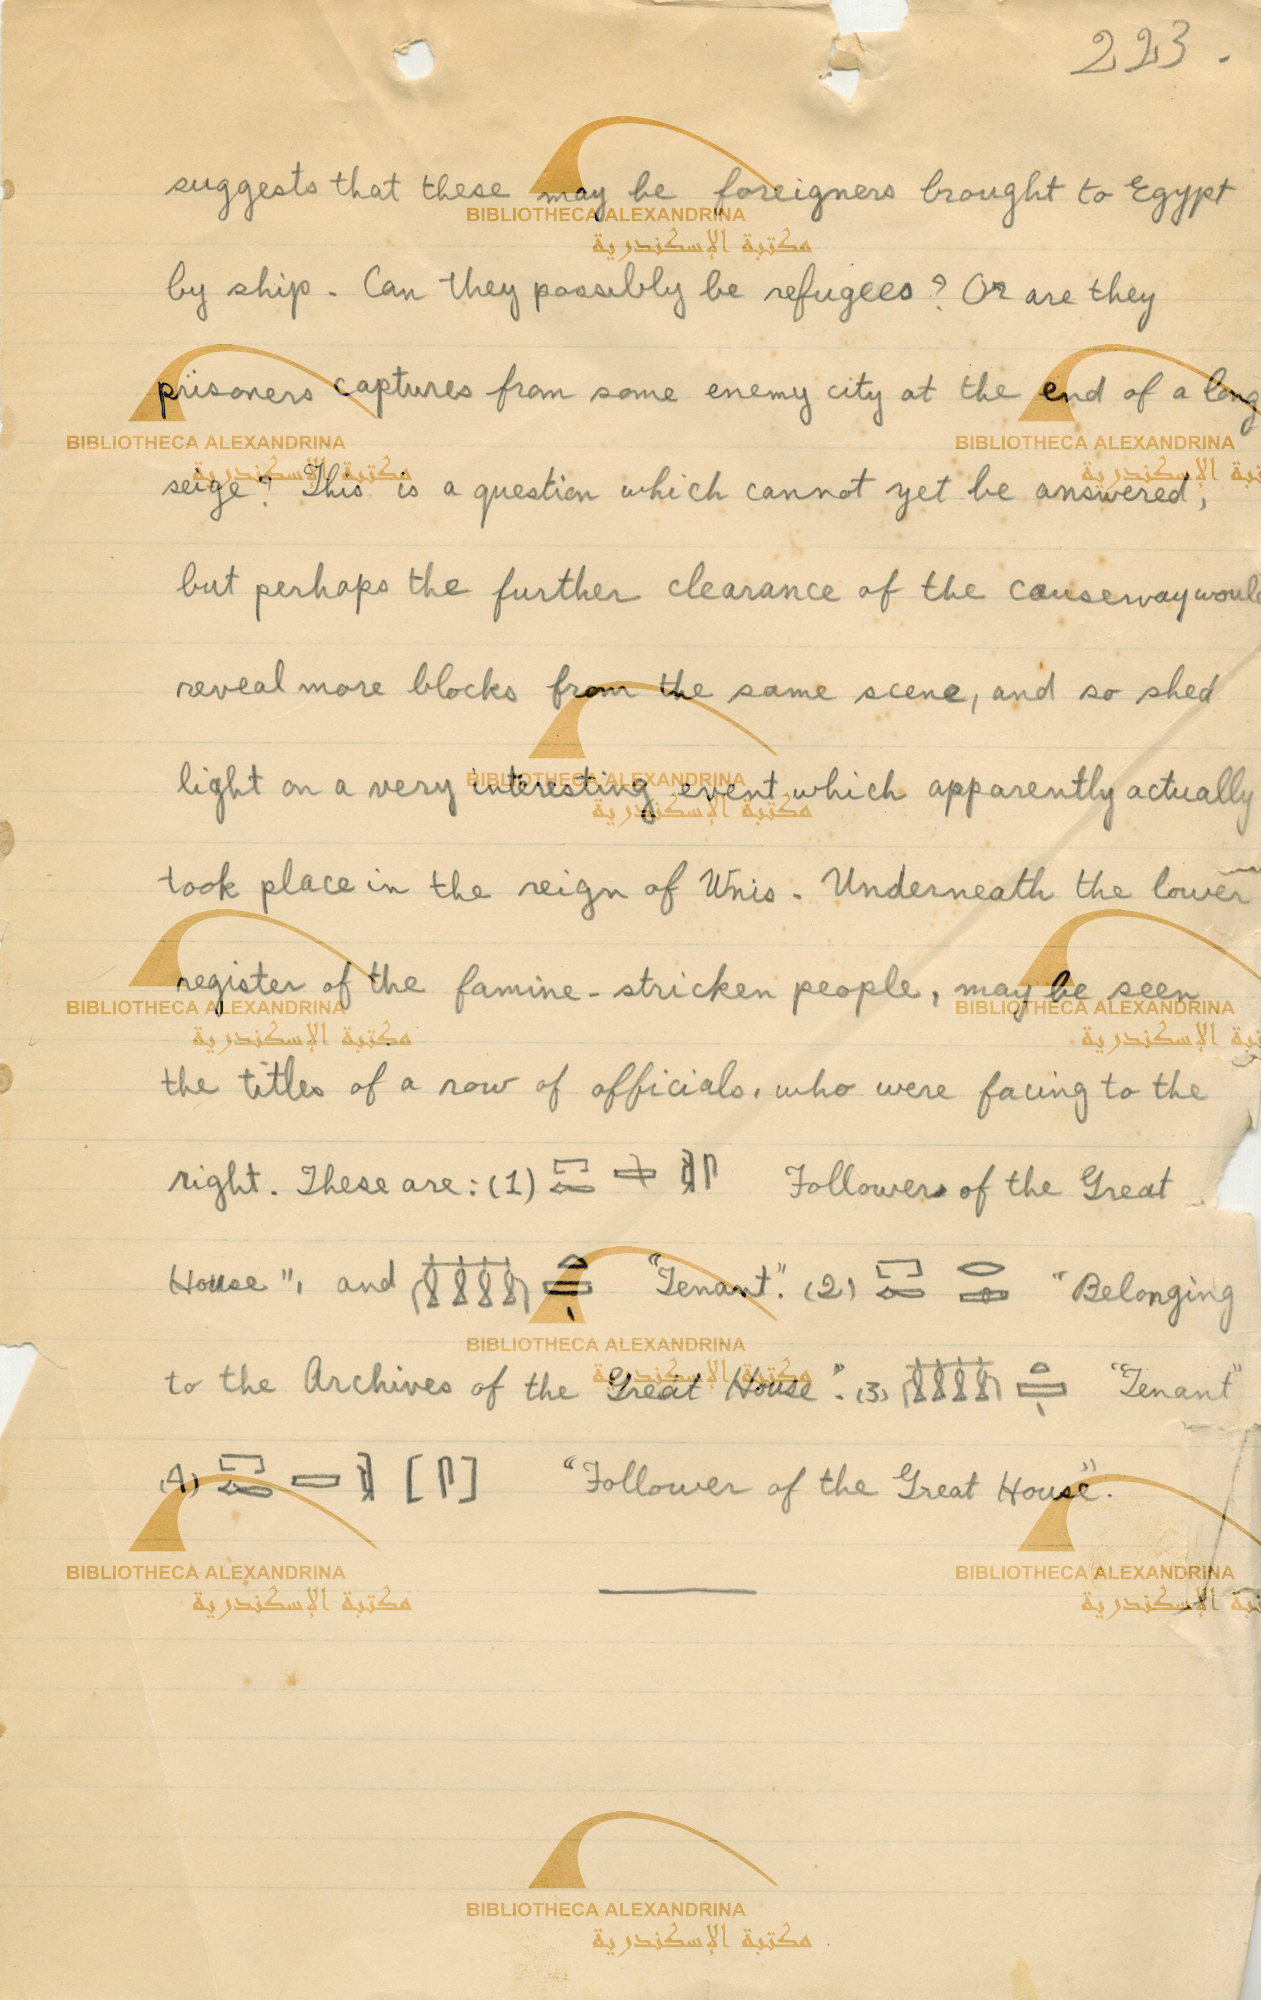 223.
suggests that these may be foreigners brought to Egypt
by ship. Can they possibly be refugees? Or are they
prisoners captures from some enemy city at the end of a long
seige? This is a question which cannot yet be answered,
but perhaps the further clearance of the causeway would
reveal more blocks from the same scene, and so shed
light on a very interesting event which apparently actually
took place in the reign of Wnis. Underneath the lower
register of the famine-stricken people, may be seen
the titles of a row of officials, who were facing to the
right. These are: (1) Follower of the Great
House", and "Tenant". (2) "Belonging
to the Archives of the Great House". (3) "Tenant"
(4) [ ] "Follower of the Great House".
BIBLIOTHECA ALEXANDRINA
مكتبة الإسكندرية